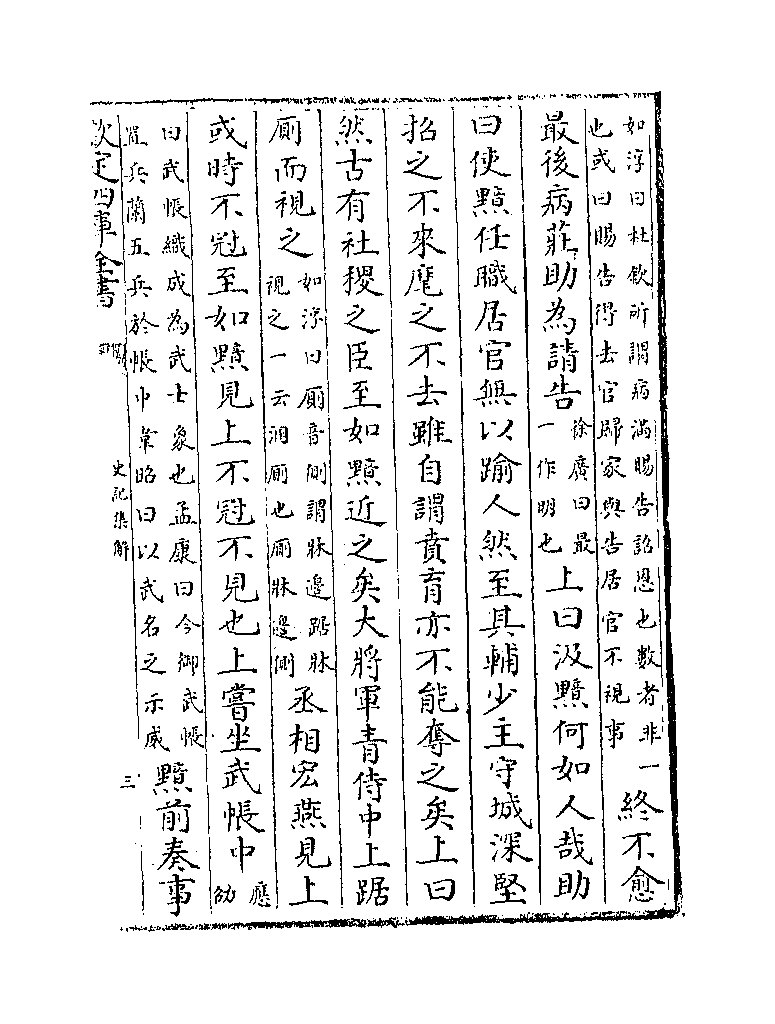 如淳曰杜欽所謂病滿賜告詔恩也數者非一
也或曰賜告得去官歸家與告居官不視事
終不愈
最後病莊助為請告
徐廣曰最
一作明也
上曰汲黯何如人哉助
曰使黯任職居官無以踰人然至其輔少主守城深堅
招之不來麾之不去雖自謂賁育亦不能奪之矣上曰
然古有社稷之臣至如黯近之矣大將軍青侍中上踞
廁而視之
如淳曰廁音側謂牀邊踞牀
視之一云溷廁也廁牀邊側
丞相宏燕見上
或時不冠至如黯見上不冠不見也上嘗坐武帳中
應
劭
曰武帳織成為武士象也孟康曰今御武帳
置兵蘭五兵於帳中韋昭曰以武名之示威
黯前奏事
欽定四庫全書
史記集解
三